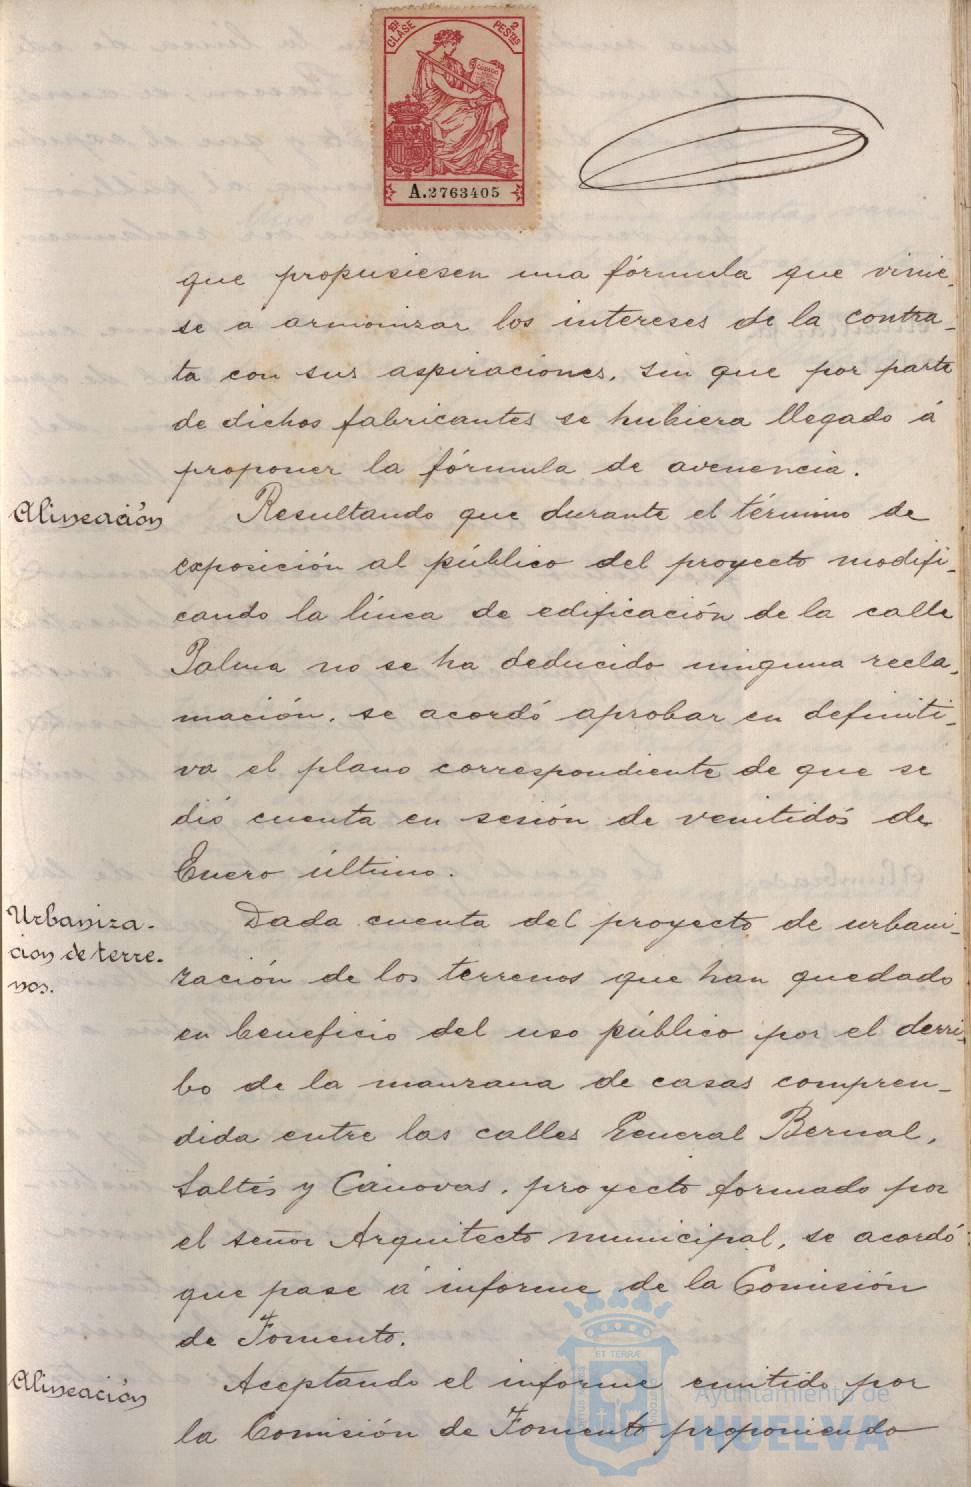 10ª CLASE 2 PESTAS
A.2763405
que propusiesen una fórmula que vinie-
se a armonizar los intereses de la contra-
ta con sus aspiraciones, sin que por parte
de dichos fabricantes se hubiera llegado á
proponer la fórmula de avenencia.
Alineación
Resultando que durante el término de
exposición al público del proyecto modifi-
cando la línea de edificación de la calle
Palma no se ha deducido ninguna recla-
mación, se acordó aprobar en definiti-
va el plano correspondiente de que se
dió cuenta en sesión de veintidós de
Enero último.
Urbaniza-
cion de terre-
nos.
Dada cuenta del proyecto de urbani-
zación de los terrenos que han quedado
en beneficio del uso público por el derri-
bo de la manzana de casas compren-
dida entre las calles General Bernal,
Saltés y Cánovas, proyecto formado por
el señor Arquitecto municipal, se acordó
que pase á informe de la Comisión
de Fomento.
Alineación
Aceptando el informe emitido por
la Comisión de Fomento proponiendo
ET TERRÆ
Ayuntamiento de
HUELVA